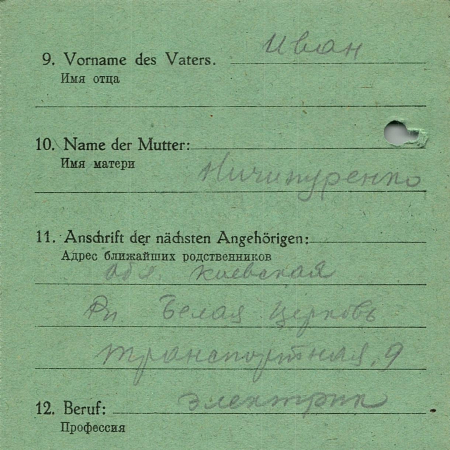 9. Vorname des Vaters. Иван
Имя отца
10. Name der Mutter:
Имя матери
Ничипуренко
11. Anschrift der nächsten Angehörigen:
Адрес ближайших родственников
обл Киевская
Рн Белая Церковь
Транспортная, 9
12. Beruf: Электрик
Профессия